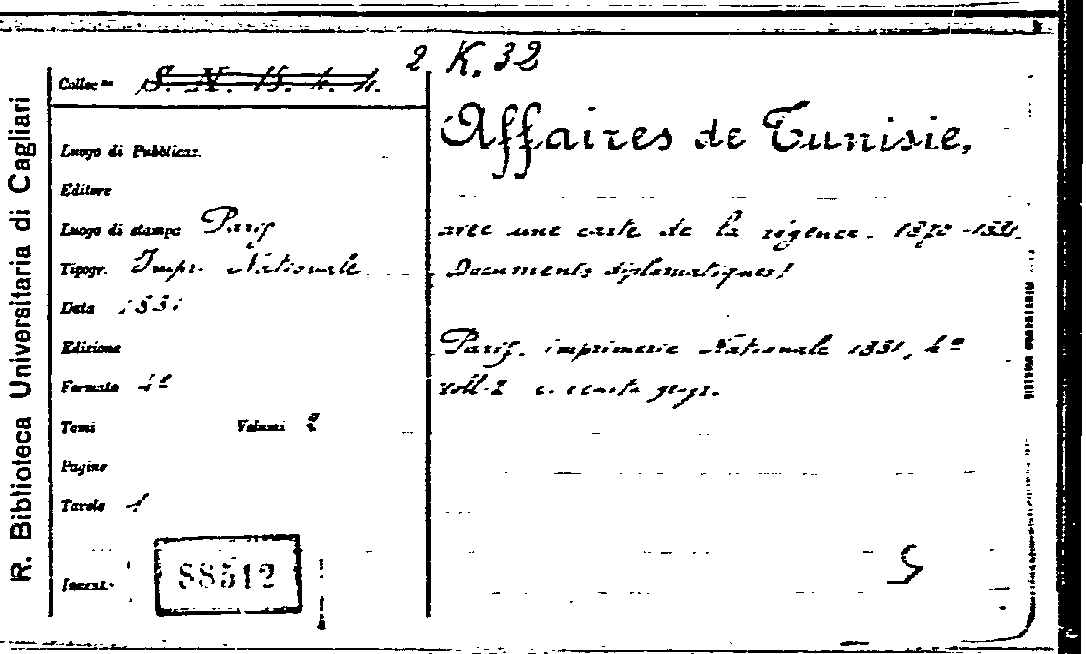 R. Biblioteca Universitaria di Cagliari
2 K. 32
Colloc.ne S. N. 15. 4. 4.
Luogo di Pubblicaz.
Editore
Luogo di stampa Paris
Tipogr. Impr. Nationale
Data 1881
Edizione
Formato 4º
Tomi Volumi 2
Pagine
Tavole 1
Inventº 88512
Affaires de Tunisie,
avec une carte de la régence. 1870-1881.
Documents diplomatiques!
Paris. imprimerie Nationale 1881, 4º
voll. 2 c. carta geogr.
S